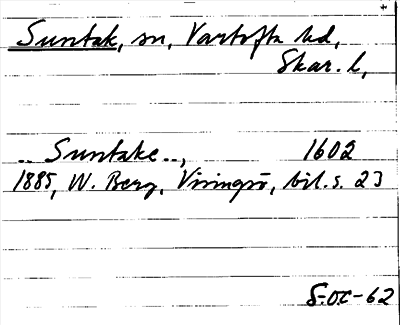 Suntak, sn, Vartofta hd,
Skar. l,
.. Suntake .., 1602
1885, W. Berg, Visingsö, bil. s. 23
S-OC-62